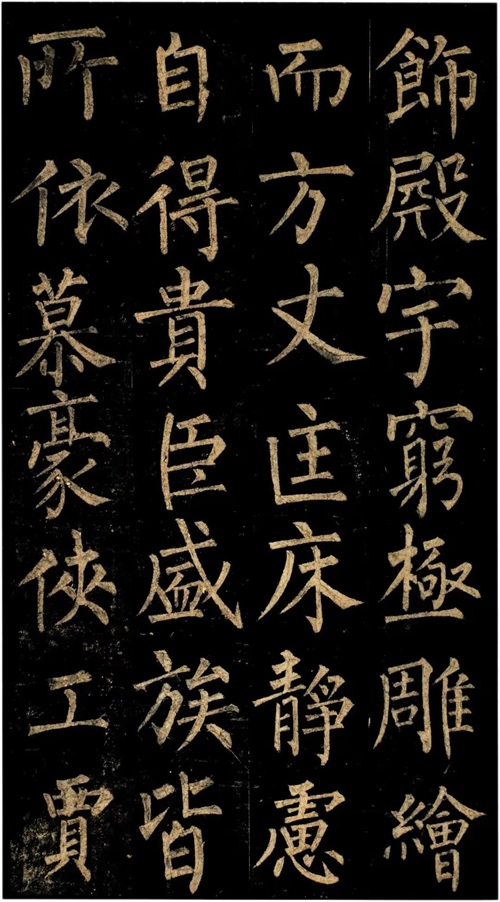 飾殿宇窮極雕繪
而方丈匡床靜慮
自得貴臣盛族皆
所依慕豪俠工賈